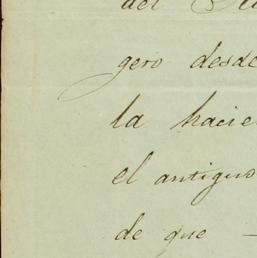 del
gero desde
la hacie
el antiguo
de que —